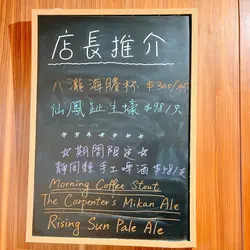 店長推介
八瀧海膽杯 $300/杯
仙鳳趾生蠔 $78/只
☆期間限定☆
靜岡縣手工啤酒 $58/支
Morning Coffee Stout
The Carpenter's Mikan Ale
Rising Sun Pale Ale